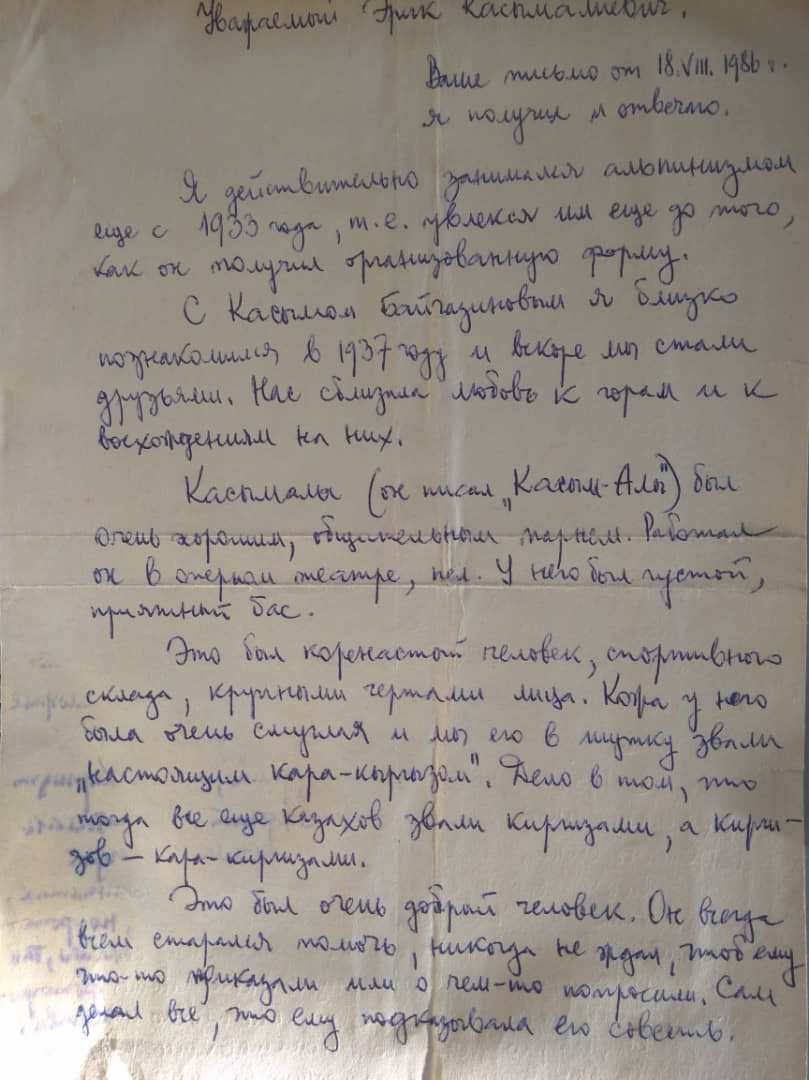 Уважаемый Эрик Касымалиевич.
Ваше письмо от 18.VIII. 1986 г.
я получил и отвечаю.
Я действительно занимался альпинизмом
еще с 1933 года, т.е. увлекся им еще до того,
как он получил организованную форму.
С Касымом Байгазиновым я близко
познакомился в 1937 году и вскоре мы стали
друзьями. Нас сблизила любовь к горам и к
восхождениям на них.
Касымалы (он писал „Касым-Алы") был
очень хорошим, общительным парнем. Работал
он в оперном театре, пел. У него был густой,
приятный бас.
Это был коренастый человек, спортивного
склада, крупными чертами лица. Кожа у него
была очень смуглая и мы его в шутку звали
„настоящим кара-кыргызом". Дело в том, что
тогда все еще казахов звали киргизами, а кирги-
зов – кара-киргизами.
Это был очень добрый человек. Он всегда
всем старался помочь, никогда не ждал, чтоб ему
что-то приказали или о чем-то попросили. Сам
делал все, что ему подсказывала его совесть.